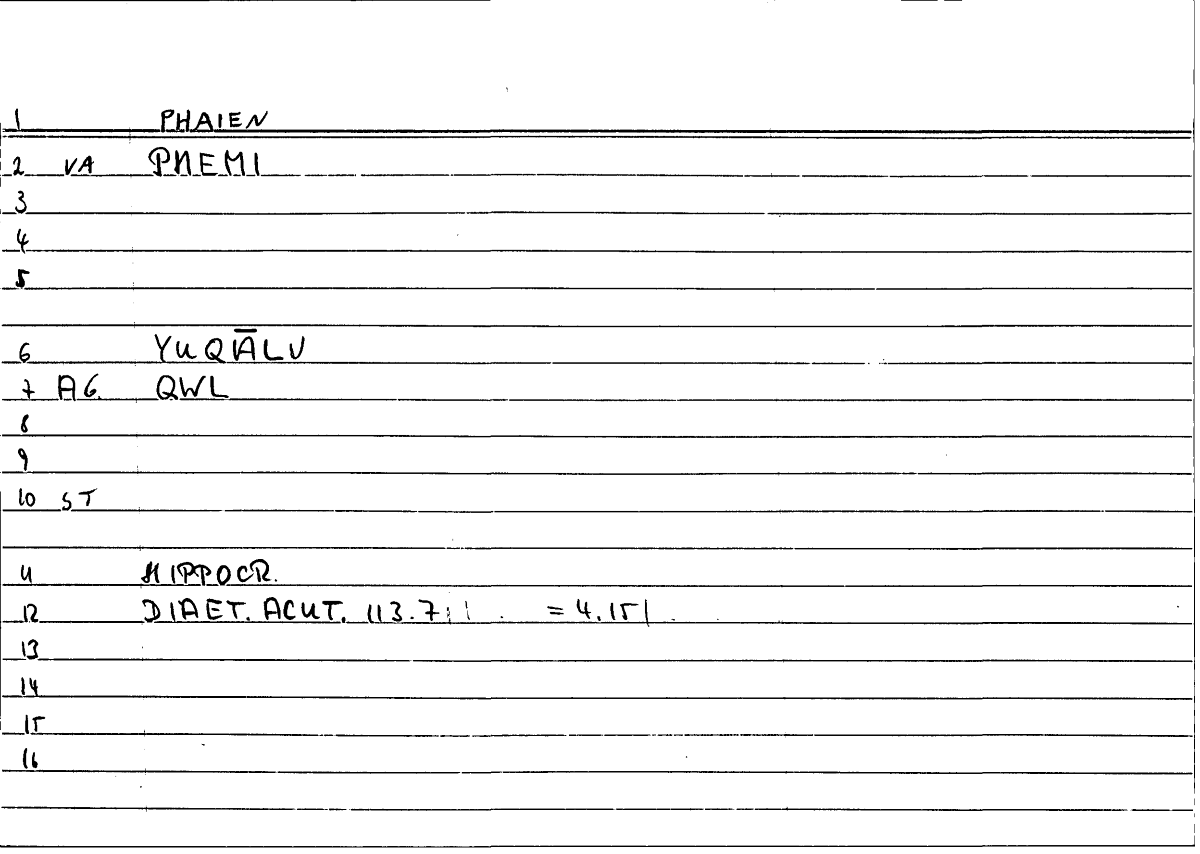 1 PHAIEN
2 VA PHEMI
3
4
5
6 YUQĀLU
7 AG. QWL
8
9
10 ST
11 HIPPOCR.
12 DIAET. ACUT. 113.7 = 4.15
13
14
15
16